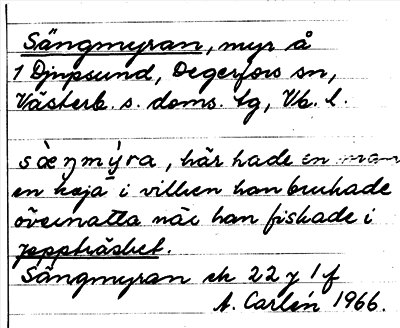 Sängmyran, myr å
1 Djupsund, Degerfors sn,
Västerb. s. doms. lg, Vb. l.
sæŋmýra, här hade en man
en koja i vilken han brukade
övernatta när han fiskade i
Joppträsket.
Sängmyran ek 22 J 1 f
A. Carlén 1966.